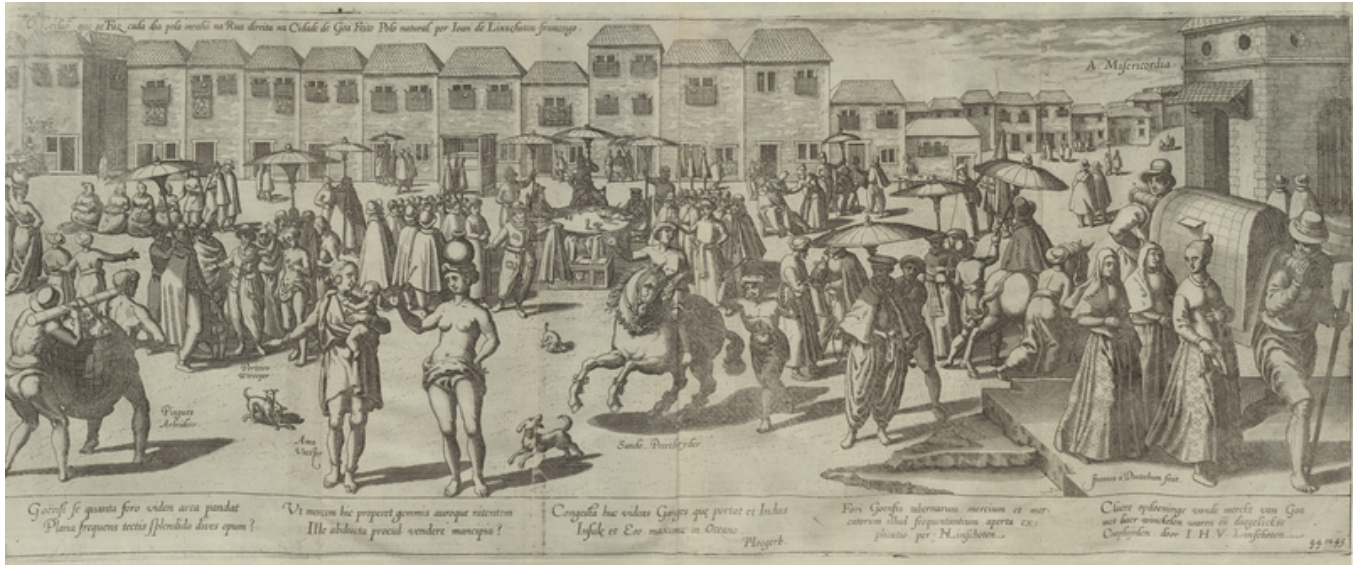 que se Faz cada dia pola menhã na Rua direita na Cidade de Goa Feito Polo natural por Ioan de Linschoten framengo.
A. Misericordia
Pingues
Ama
Sande
Ioannes a Doetechum fecit.
Goensi se quanta foro viden area pandat
Plana frequens tectis splendido dives opum?
Ut morem huc properet gemmis auroque nitentem
Ille abducta procul vendere mancipia?
Congesta huc videas Ganges que portat et Indus
Insulæ et Eoo maxima in Oceano
Fori Goensis tabernarum mercium et mer-
catorum illud frequentantium aperta ex-
plicatio per Linschoten
Claere opdoeninge vande merckt van Goa
met haer winckelen waren en daegelickse
Coopluyden door I. H. V. Linschoten